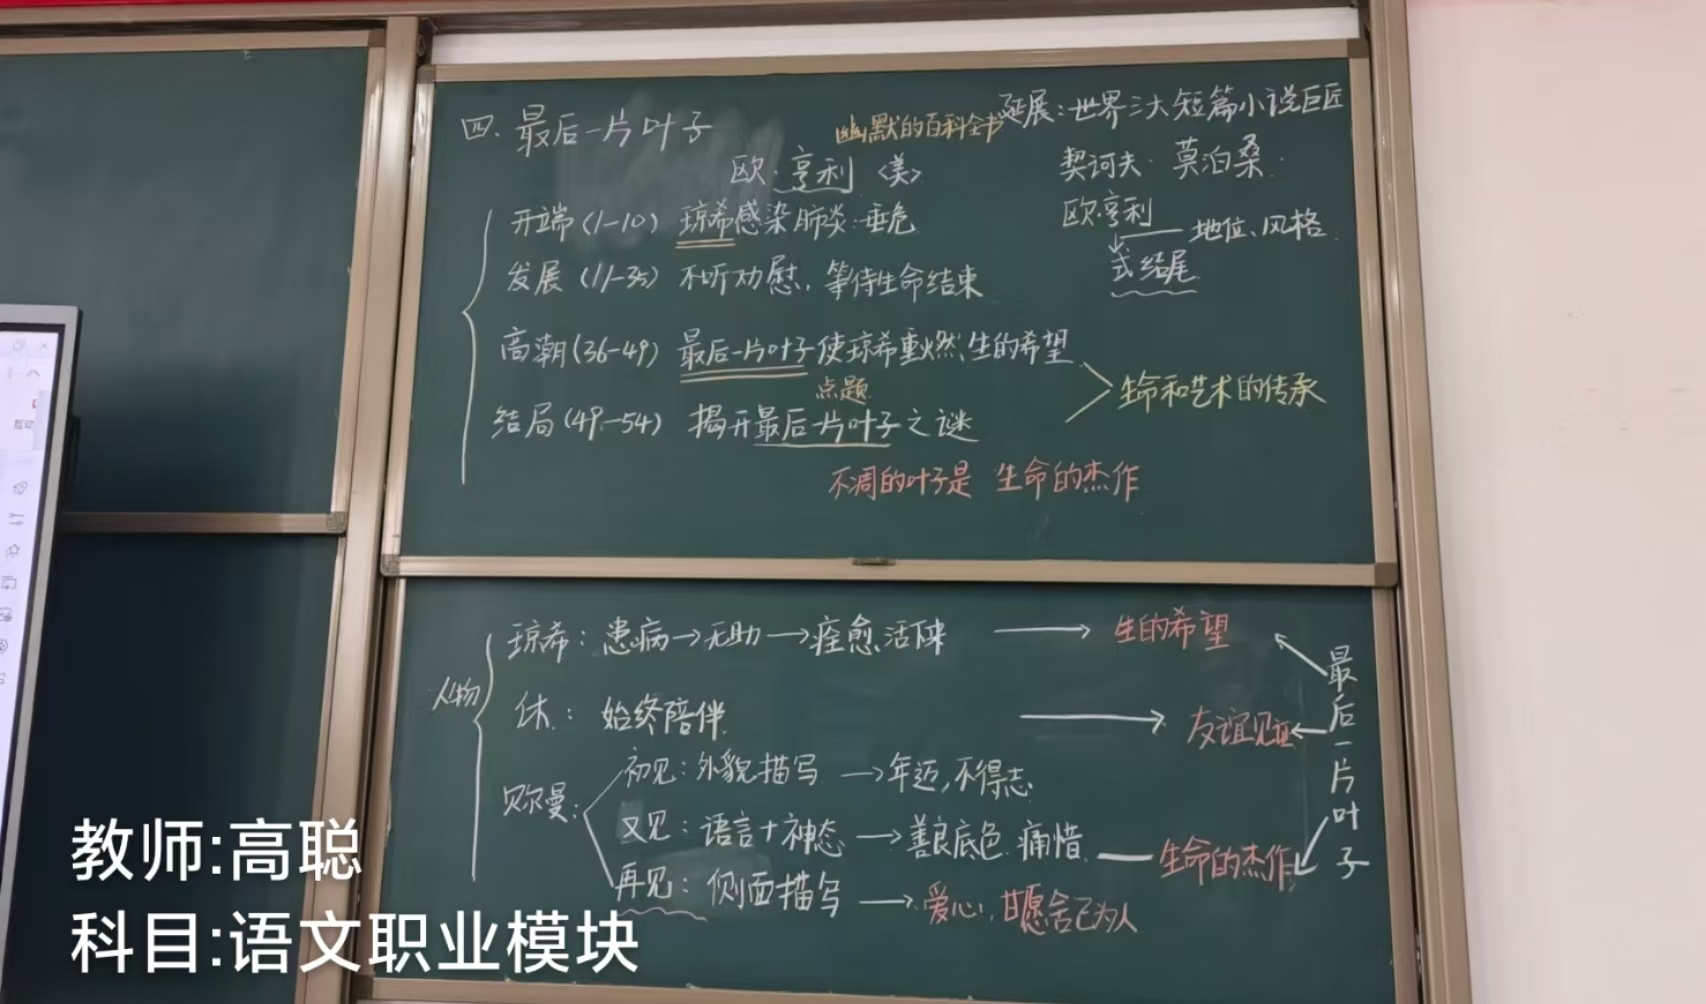 四. 最后一片叶子
幽默的百科全书
延展：世界三大短篇小说巨匠
欧·亨利〈美〉
契诃夫·莫泊桑·
欧·亨利
地位、风格
式结尾
开端（1-10）琼希感染肺炎·垂危
发展（11-35）不听劝慰，等待生命结束
高潮（36-49）最后一片叶子使琼希重燃生的希望
点题
结局（49-54）揭开最后一片叶子之谜
生命和艺术的传承
不凋的叶子是 生命的杰作
人物
琼希：患病→无助→痊愈活下来 → 生的希望
休：始终陪伴 → 友谊见证
贝尔曼：
初见：外貌描写→年迈,不得志
又见：语言+神态→善良底色 痛惜 — 生命的杰作
再见：侧面描写→爱心，甘愿舍己为人
最后一片叶子
互动
教师:高聪
科目:语文职业模块